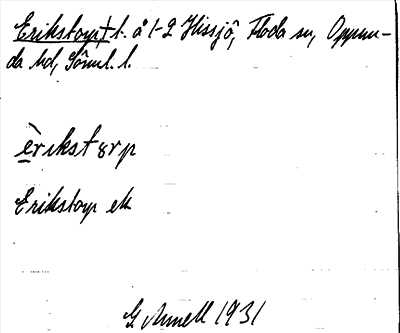 Erikstorp, t. å 1-2 Hissjö, Floda sn, Oppun-
da hd, Söml. l.
èrikstərp
Erikstorp ek
G Annell 1931